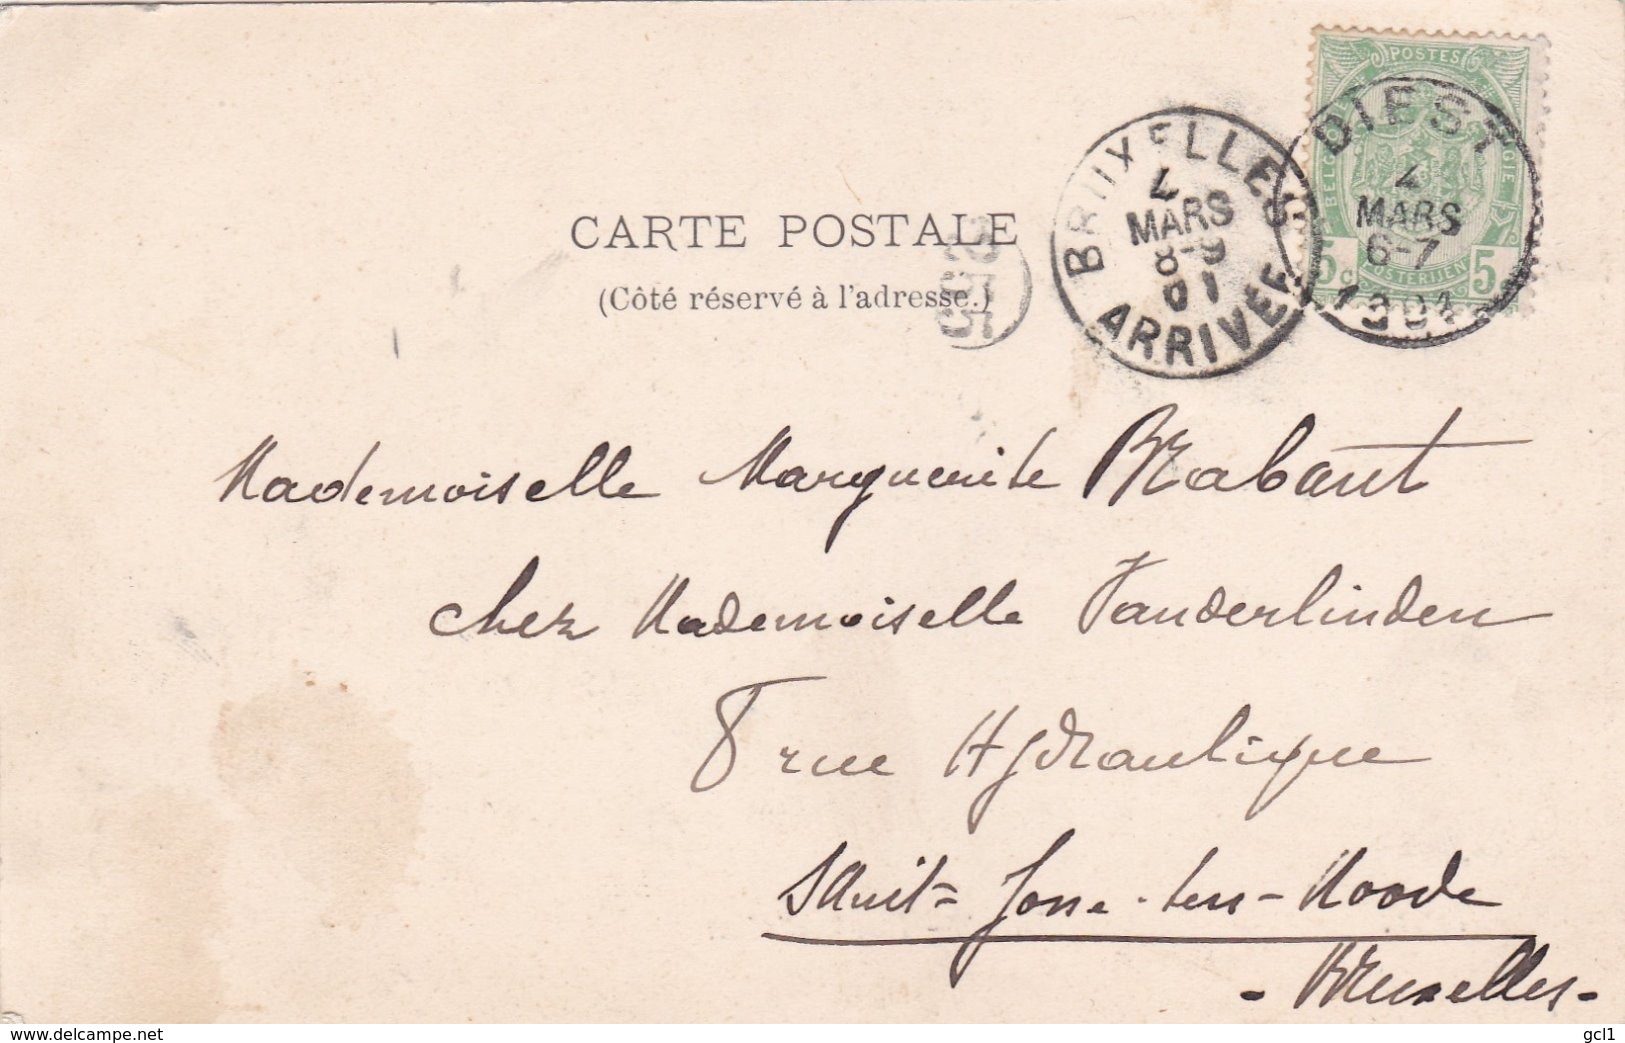 POSTES
BELGIQUE
5 c POSTERIJEN 5
DIEST
7
MARS
6-7
1901
BRUXELLES
7
MARS
8-9
01
ARRIVEE
CARTE POSTALE
(Côté réservé à l'adresse.)
Mademoiselle Marguerite Brabant
chez Mademoiselle Vanderlinden
8 rue Hydraulique
Saint-Josse-ten-Noode
- Bruxelles -
www.delcampe.net
gcl1